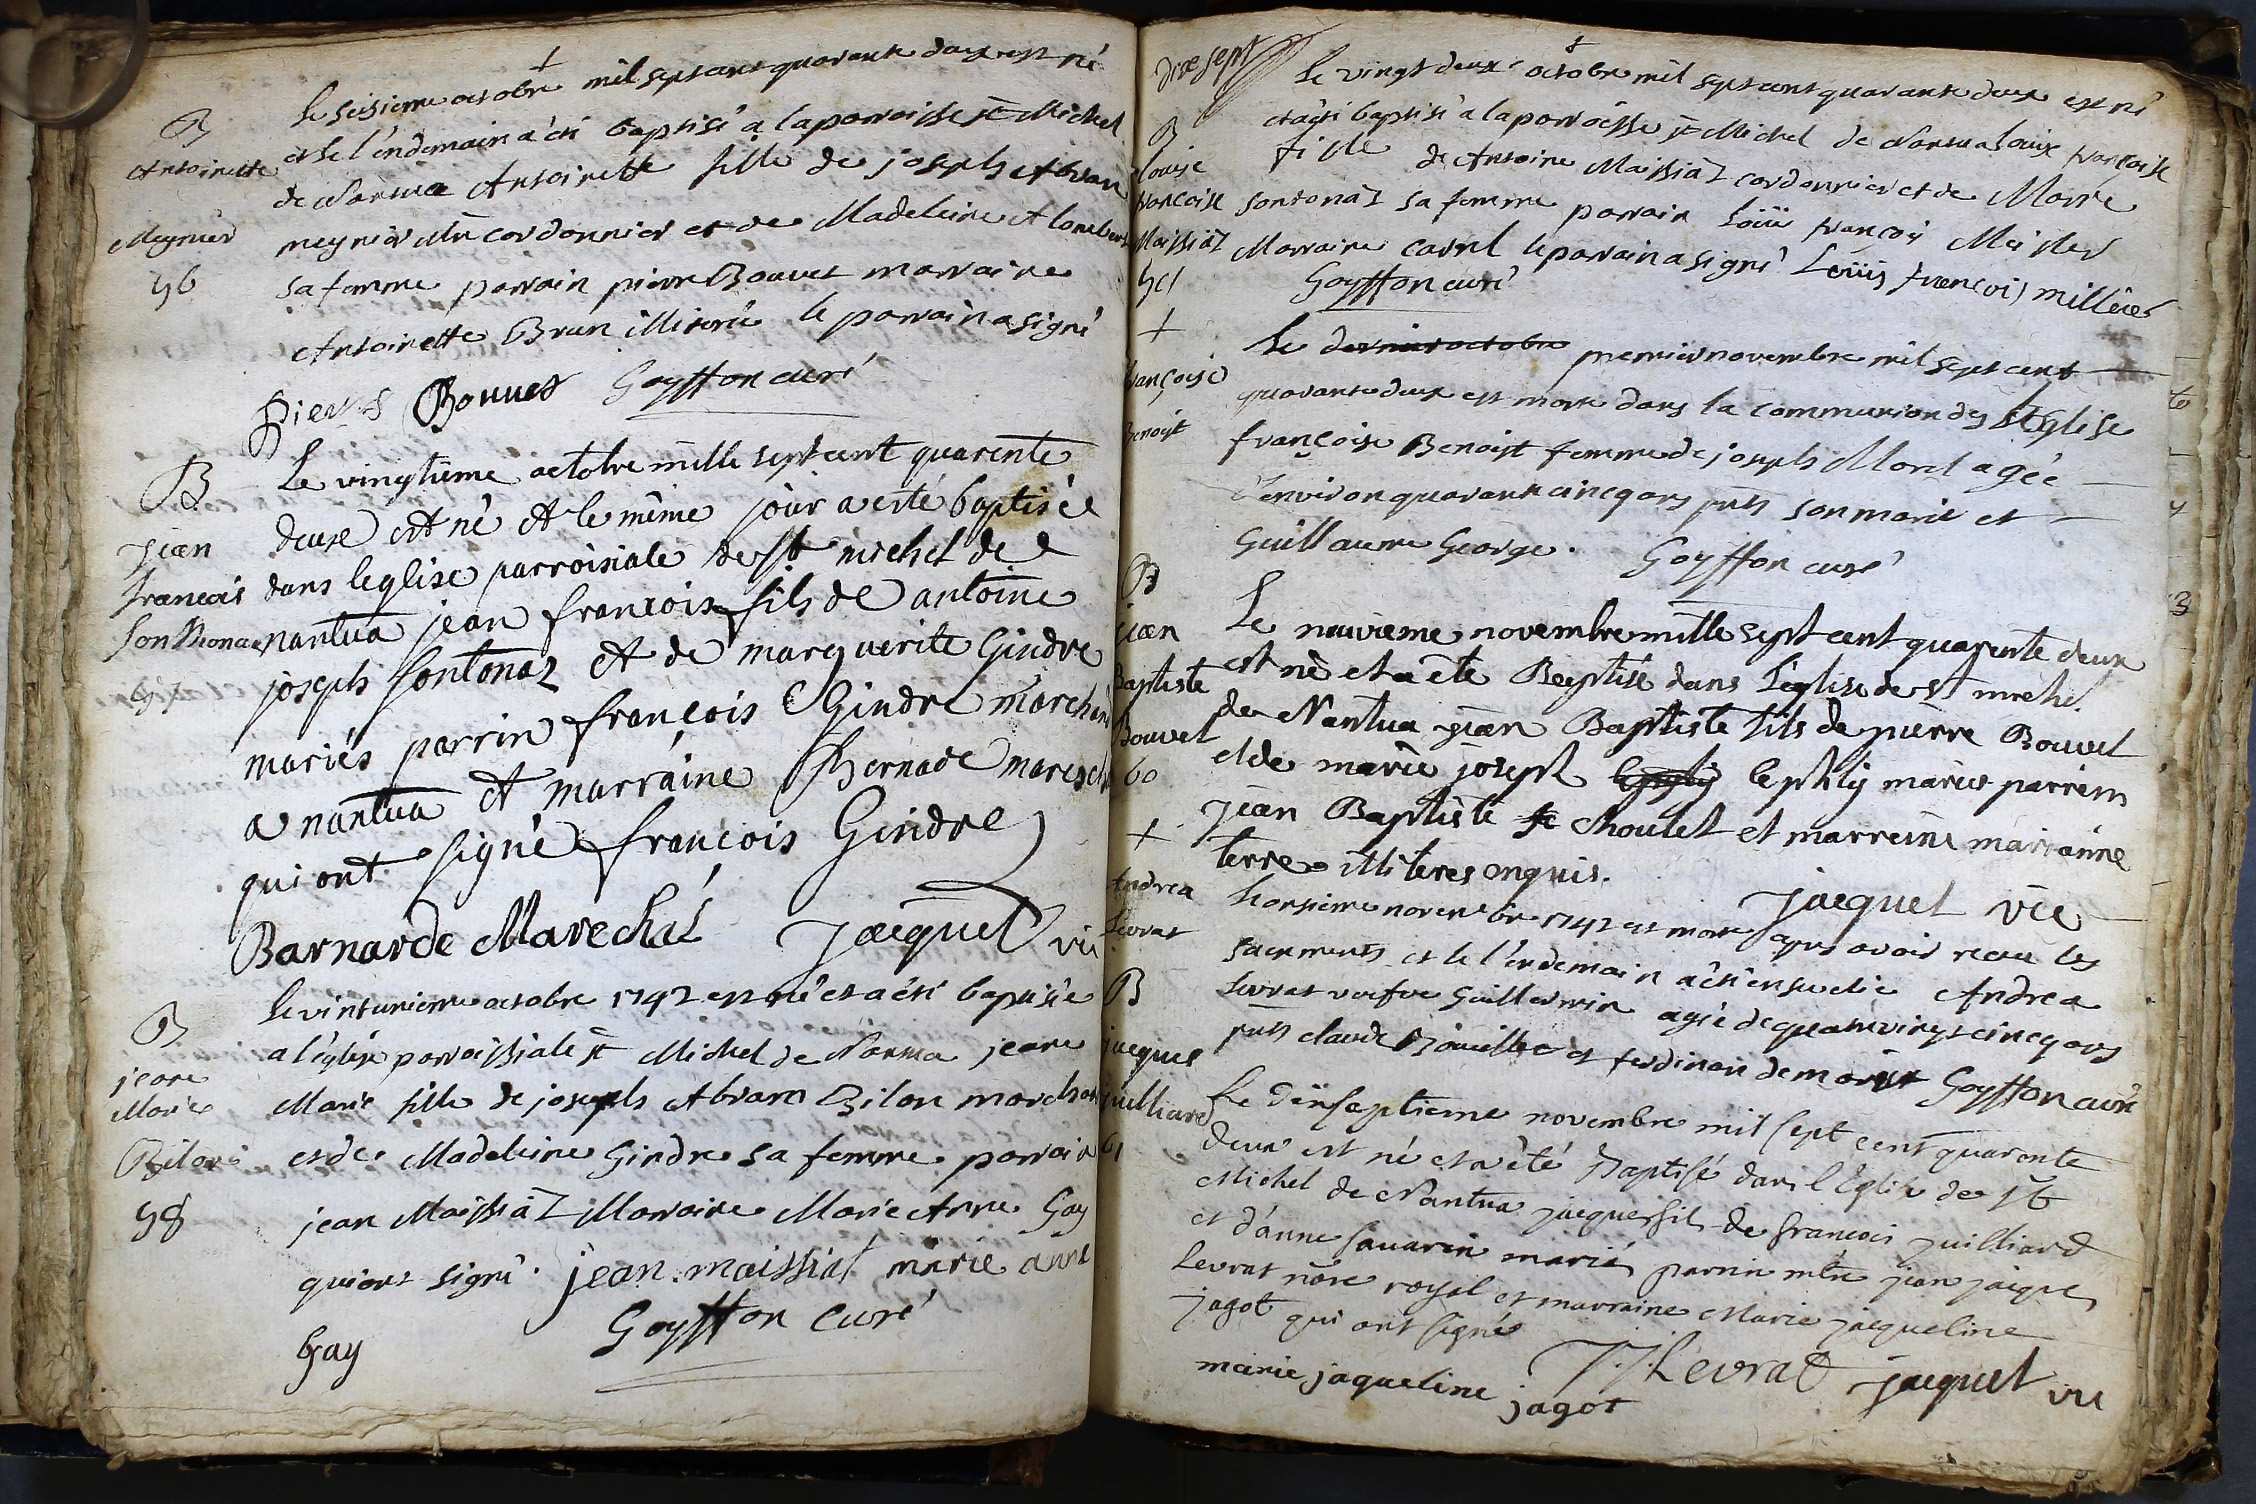 +
Le seisieme octobre mil sept cent quarante deux est né
et le l'endemain a été baptisé a la parroisse St Michel
de Nantua Antoinette fille de joseph Abram
meynier Me cordonnier et de Madeleine Alombert
sa femme parrain pierre Bouvet marraine
Antoinette Brun illiterée le parrain a signé
Pierre Bouuet Goyffon curé
B
Antoinette
Meynier
56
Le vingtieme octobre mille sept cent quarente
deuxe est né et le même jour a esté baptisée
dans leglise parroisiale de st michel de
nantua jean francois fils de antoine
joseph sontonaz et de marguerite Gindre
mariés parrin francois Gindre marchand
a nantua et marraine Bernade maresch
qui ont signé francois Gindre
Barnarde Marechal Jacquet vic
B
jean
francois
Sonthonax
57
Le vintunieme octobre 1742 est né et a été baptisée
a l'église parroissiale st Michel de Nantua jeane
Marie fille de joseph Abram Bilon marchan
et de Madeleine Gindre sa femme parrain
jean Maissiaz Marraine Marie Anne Gay
qui ont signé. jean. maissiat marie anne
Gay Goyffon curé
B
jeane
Marie
Bilon
58
dixsept
+
Le vingt deux octobre mil sept cent quarante deux est né
et a été baptisé a la parroisse st Michel de Nantua Louise francoise
fille de Antoine Maissiaz cordonnier et de Marie
sontonaz sa femme parrain Loüis françois Meillier
Marraine Carrel le parrain a signé Loüis francois millier
Goyffon curé
B
Louise
francoise
Maissiaz
59
Le dernier octobre premier novembre mil sept cent
quarante deux est morte dans la communion des st Eglise
françoise Benoist femme de joseph Morel agée
d'environ quarante cincq ans pnts son marié et
Guillaume George. Goyffon curé
+
françoise
Benoist
Le nauvieme novembre mille sept cent quarente deux
est né et a été Baeptisé dans L'église de st michel
de Nantua jean Baptiste fils de pierre Bouvet
et de marie joseph lephly marier parrein
Jean Baptiste choulet et marreine marianne
terre illiteres enquis.
Jacquet vic
B
jean
Baptiste
Bouvet
60
L'onsieme novembre 1742 est morte apres avoir receu les
sacrements et le l'endemain a été ensevelie Andrea
Levrat veufve Guillermin agée de quatre vingt cincq ans
pnts claude Bouillet et ferdinan demorist Goyffon curé
+
Andrea
Levrat
Le dixseptieme novembre mil sept cent quarante
deux est né et a été Baptisé dans l'Eglise de st
Michel de Nantua jacques fils de francois juilliard
et d'anne savarin mariés parrin mtre jean jacque
Levrat nore royal et marraine Marie jacqueline
jagot qui ont signés
J. J. Levrat jacquet vic
marie jaqueline jagot
B
jacques
juilliard
61